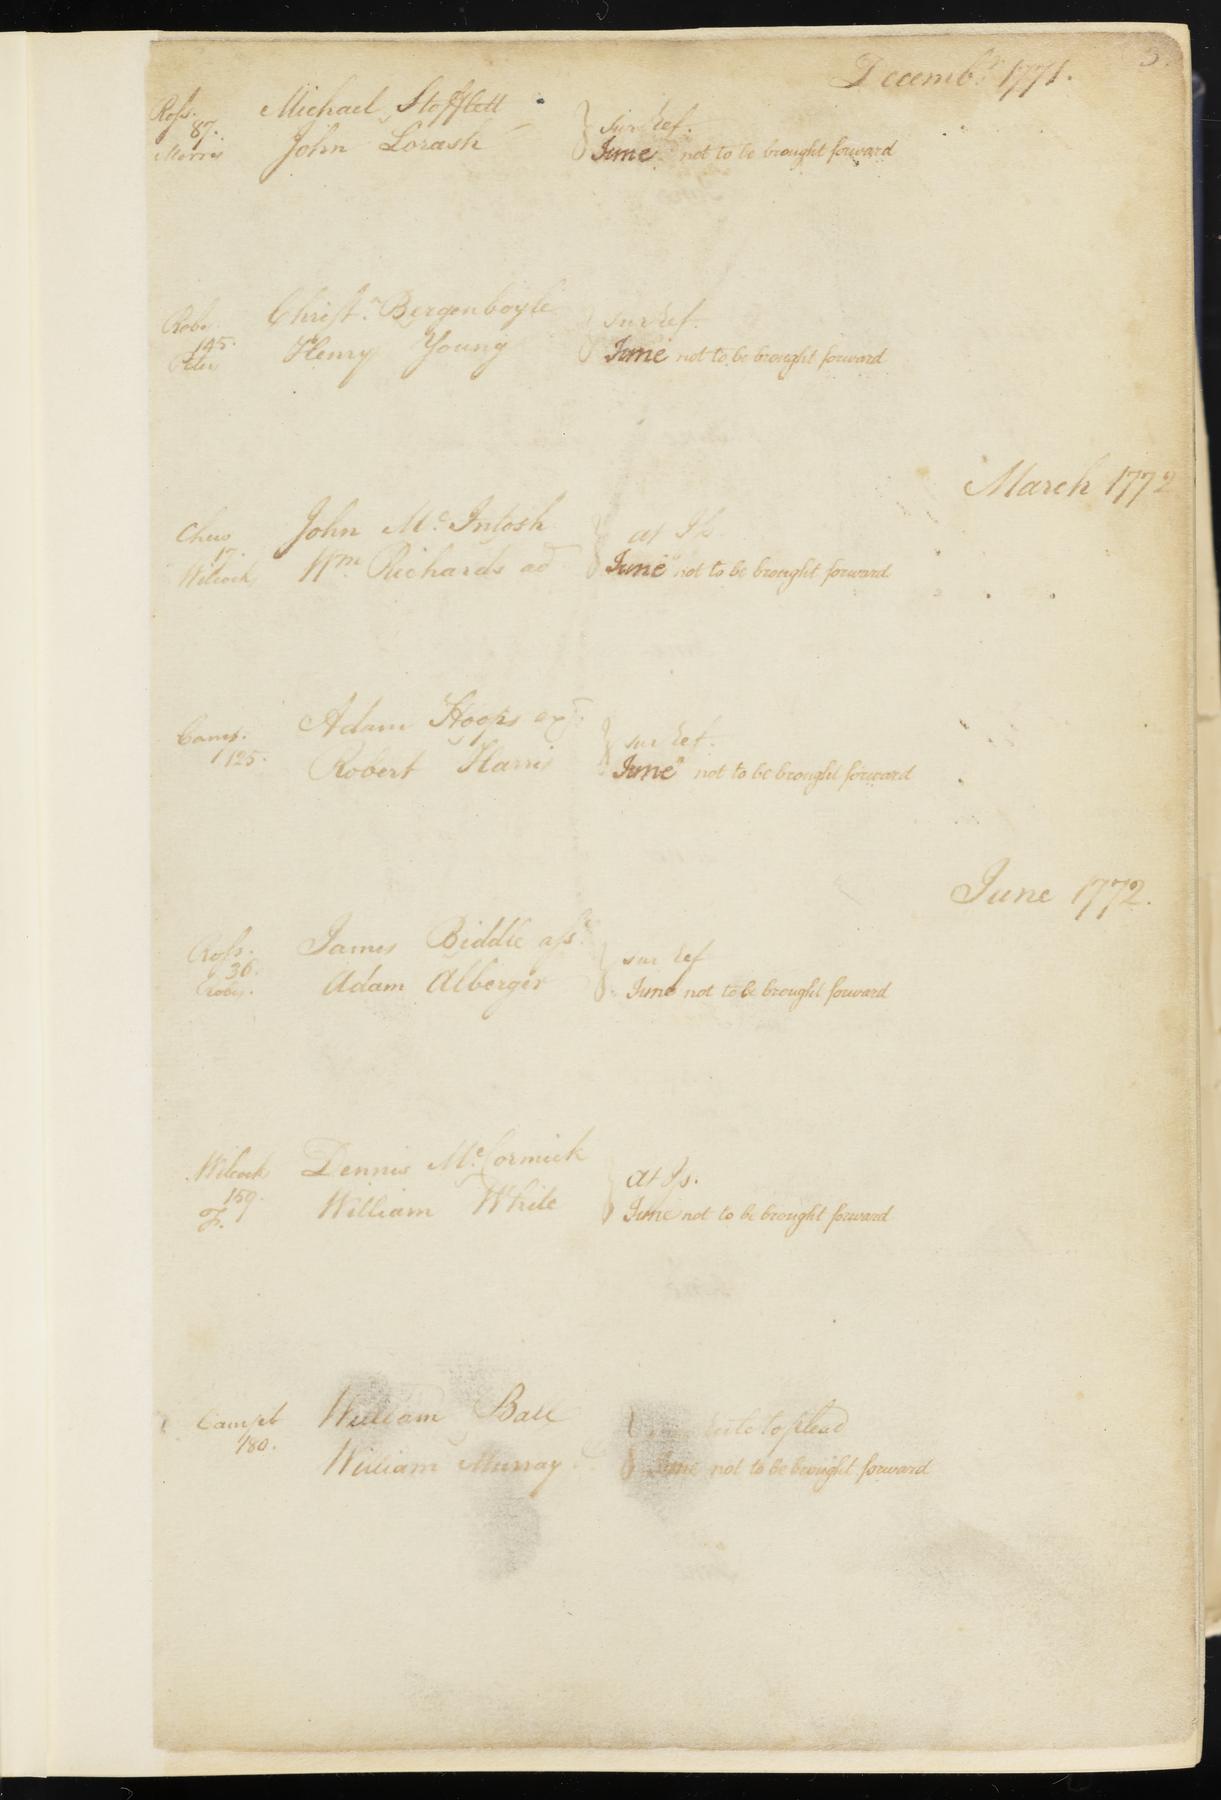 Decemb.r 1771.
3.
Ross. Michael Stofflett
87. sur ref.
Morris John Lorash June not to be brought forward
Robs. Christ.n Bergenboyle sur ref.
145.
Henry Young June not to be brought forward
March 1772
Chew John Mc.Intosh at Is
17.
Wilcock Wm. Richards ad June not to be brought forward
Camp. Adam Hoops exr. sur ref.
125. Robert Harris June not to be brought forward
June 1772.
Ross. James Biddle asse. sur ref
36.
Robs. Adam Alberger June not to be brought forward
Wilcock Dennis Mc.Cormick at Is.
159.
William White June not to be brought forward
Campb William Ball rule to plead
180. William Murray June not to be brought forward